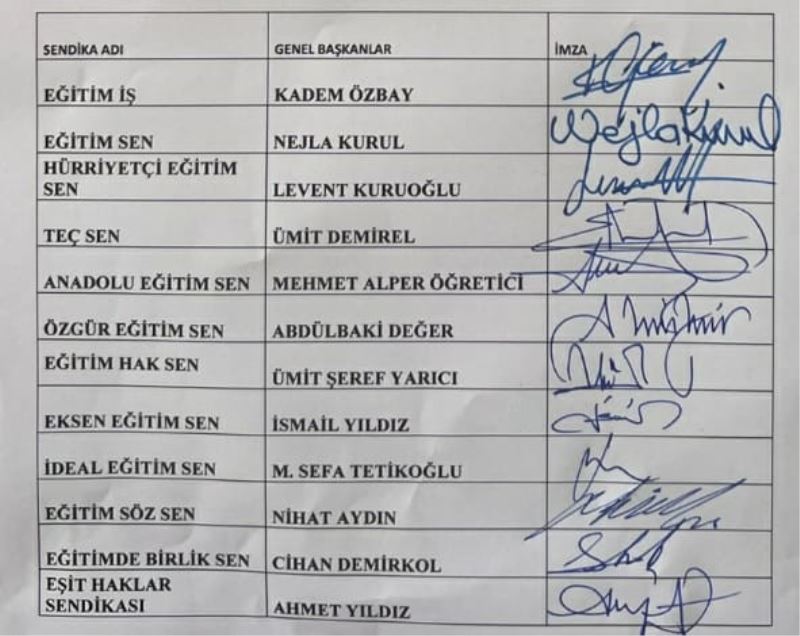 SENDİKA ADI GENEL BAŞKANLAR İMZA
EĞİTİM İŞ KADEM ÖZBAY
EĞİTİM SEN NEJLA KURUL Nejla Kurul
HÜRRİYETÇİ EĞİTİM
SEN LEVENT KURUOĞLU
TEÇ SEN ÜMİT DEMİREL
ANADOLU EĞİTİM SEN MEHMET ALPER ÖĞRETİCİ
ÖZGÜR EĞİTİM SEN ABDÜLBAKİ DEĞER
EĞİTİM HAK SEN
ÜMİT ŞEREF YARICI
EKSEN EĞİTİM SEN İSMAİL YILDIZ
İDEAL EĞİTİM SEN M. SEFA TETİKOĞLU
EĞİTİM SÖZ SEN NİHAT AYDIN
EĞİTİMDE BİRLİK SEN CİHAN DEMİRKOL
EŞİT HAKLAR
SENDİKASI AHMET YILDIZ